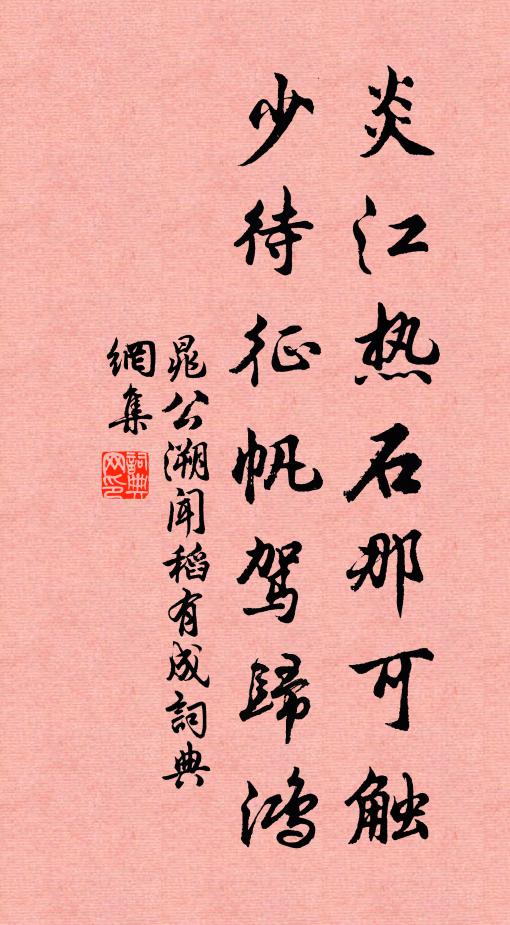 炎江热石那可触
少待征帆驾歸鸿
晁公溯闻稻有成詞典
網集
詞典
网印